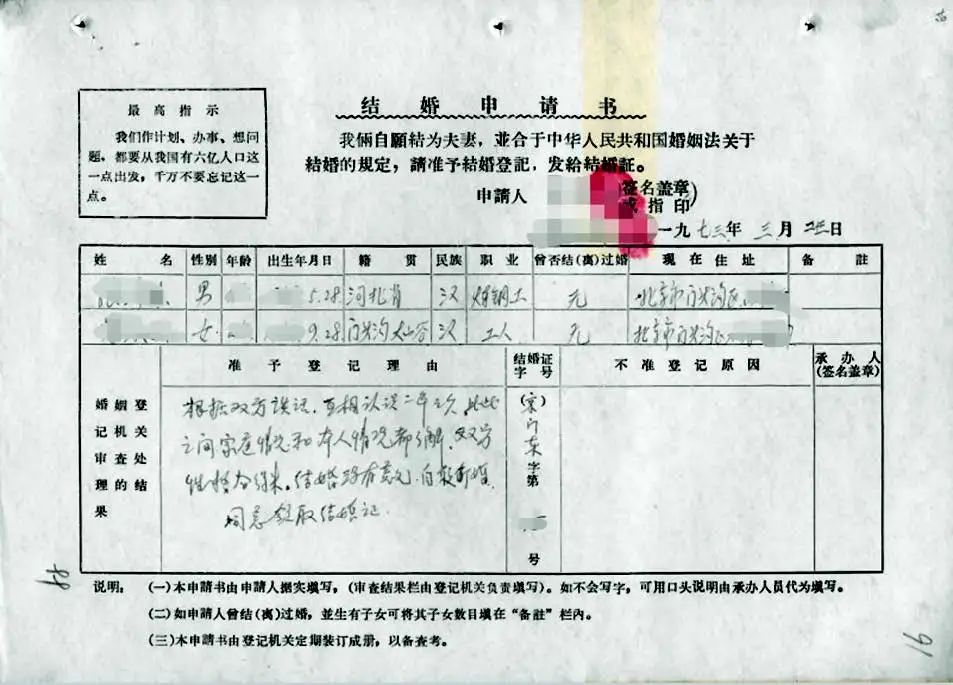 结婚申请书
最高指示
我们作计划、办事、想问
题，都要从我国有六亿人口这
一点出发，千万不要忘记这一
点。
我俩自願結为夫妻，並合于中华人民共和国婚姻法关于
結婚的規定，請准予結婚登記，发給結婚証。
申請人 (签名盖章)
或指印
一九七三年 三月 二五日
姓名 性别 年龄 出生年月日 籍贯 民族 职业 曾否结(离)过婚 现在住址 备註
男 5.28 河北省 汉 炼钢工 无 北京市门头沟区
女 9.28 门头沟 汉 工人 无 北京市门头沟区
准予登记理由 结婚证字号 不准登记原因 承办人
(签名盖章)
婚姻登
记机关
审查处
理的结
果
根据双方谈话，互相认识二年之久，彼此
之间家庭情况和本人情况都了解，双方
性格合得来，结婚没有意见，自
同意领取结婚证.
字第 号
说明：(一)本申請书由申請人据实填写，(审查結果栏由登记机关負責填写)。如不会写字，可用口头説明由承办人员代为填写。
(二)如申請人曾结(离)过婚，並生有子女可将其子女数目填在“备註”栏內。
(三)本申請书由登记机关定期装订成册，以备查考。
91